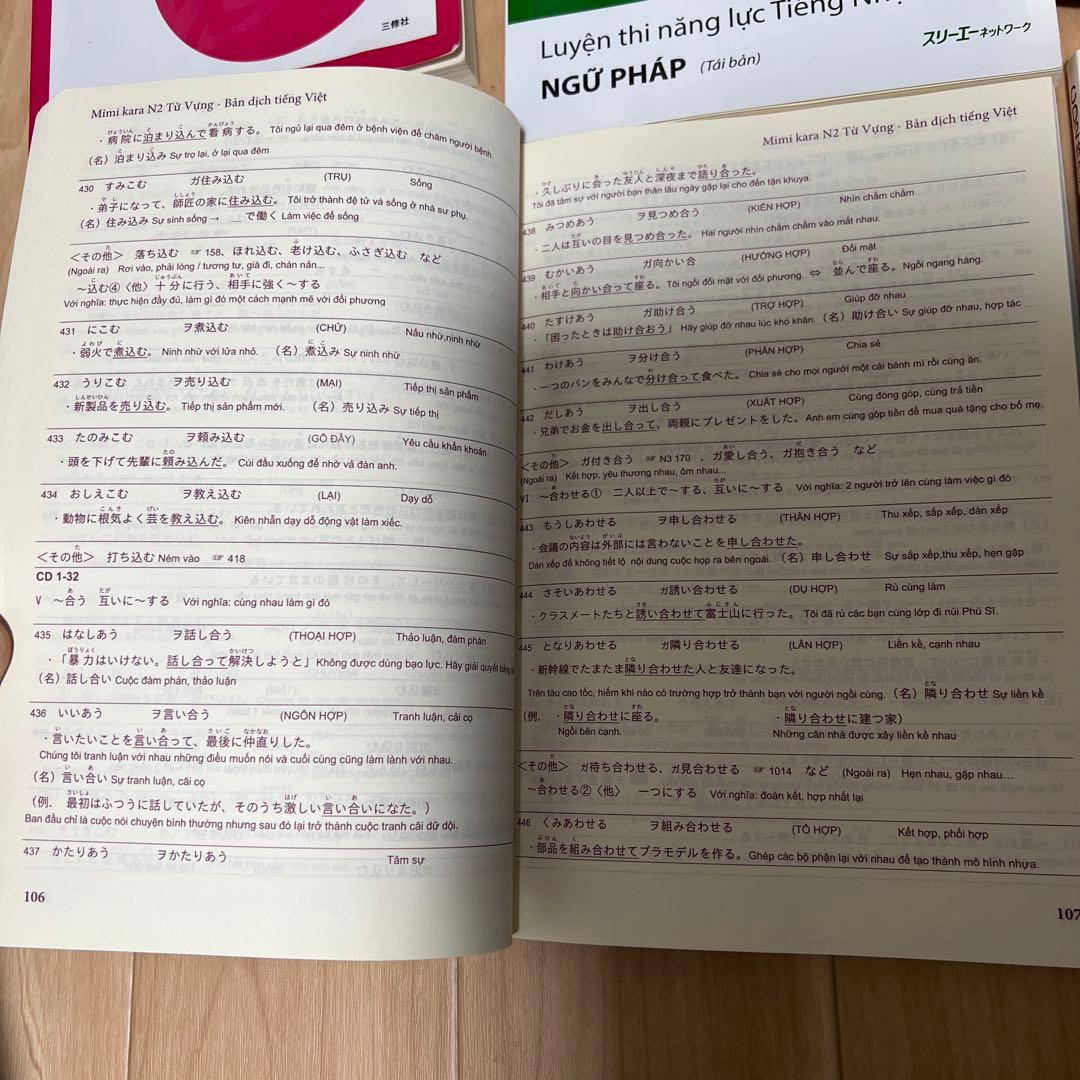 三修社
Luyện thi năng lực Tiếng Nhậ
スリーエーネットワーク
NGỮ PHÁP (Tái bản)
Mimi kara N2 Từ Vựng - Bản dịch tiếng Việt
・病院に泊まり込んで看病する。 Tôi ngủ lại qua đêm ở bệnh viện để chăm người bệnh.
(名) 泊まり込み Sự trọ lại, ở lại qua đêm
430 すみこむ ガ住み込む (TRỤ) Sống
・弟子になって、師匠の家に住み込む。 Tôi trở thành đệ tử và sống ở nhà sư phụ.
(名) 住み込み Sự sinh sống → __で働く Làm việc để sống
<その他> 落ち込む ☞ 158、ほれ込む、老け込む、ふさぎ込む など
(Ngoài ra) Rơi vào, phải lòng / tương tư, già đi, chán nản...
～込む④〈他〉十分に行う、相手に強く～する
Với nghĩa: thực hiện đầy đủ, làm gì đó một cách mạnh mẽ với đối phương
431 にこむ ヲ煮込む (CHỬ) Nấu nhừ,ninh nhừ
・弱火で煮込む。 Ninh nhừ với lửa nhỏ. (名) 煮込み Sự ninh nhừ
432 うりこむ ヲ売り込む (MẠI) Tiếp thị sản phẩm
・新製品を売り込む。 Tiếp thị sản phẩm mới. (名) 売り込み Sự tiếp thị
433 たのみこむ ヲ頼み込む (GÕ ĐẦY) Yêu cầu khẩn khoản
・頭を下げて先輩に頼み込んだ。 Cúi đầu xuống để nhờ vả đàn anh.
434 おしえこむ ヲ教え込む (LẠI) Dạy dỗ
・動物に根気よく芸を教え込む。 Kiên nhẫn dạy dỗ động vật làm xiếc.
<その他> 打ち込む Ném vào ☞ 418
CD 1-32
V ～合う 互いに～する Với nghĩa: cùng nhau làm gì đó
435 はなしあう ヲ話し合う (THOẠI HỢP) Thảo luận, đàm phán
・「暴力はいけない。話し合って解決しようと」 Không được dùng bạo lực. Hãy giải quyết bằng
(名) 話し合い Cuộc đàm phán, thảo luận
436 いいあう ヲ言い合う (NGÔN HỢP) Tranh luận, cãi cọ
・言いたいことを言い合って、最後に仲直りした。
Chúng tôi tranh luận với nhau những điều muốn nói và cuối cùng cũng làm lành với nhau.
(名) 言い合い Sự tranh luận, cãi cọ
(例. 最初はふつうに話していたが、そのうち激しい言い合いになた。)
Ban đầu chỉ là cuộc nói chuyện bình thường nhưng sau đó lại trở thành cuộc tranh cãi dữ dội.
437 かたりあう ヲかたりあう Tâm sự
106
Mimi kara N2 Từ Vựng - Bản dịch tiếng Việt
・久しぶりに会った友人と深夜まで語り合った。
Tôi đã tâm sự với người bạn thân lâu ngày gặp lại cho đến tận khuya.
438 みつめあう ヲ見つめ合う (KIẾN HỢP) Nhìn chằm chằm
・二人は互いの目を見つめ合った。 Hai người nhìn chằm chằm vào mắt nhau.
439 むかいあう ガ向かい合 (HƯỚNG HỢP) Đối mặt
・相手と向かい合って座る。 Tôi ngồi đối mặt với đối phương. ⇔ 並んで座る。 Ngồi ngang hàng.
440 たすけあう ガ助け合う (TRỢ HỢP) Giúp đỡ nhau
・「困ったときは助け合おう」 Hãy giúp đỡ nhau lúc khó khăn. (名) 助け合い Sự giúp đỡ nhau, hợp tác
441 わけあう ヲ分け合う (PHÂN HỢP) Chia sẻ
・一つのパンをみんなで分け合って食べた。 Chia sẻ cho mọi người một cái bánh mì rồi cùng ăn.
442 だしあう ヲ出し合う (XUẤT HỢP) Cùng đóng góp, cùng trả tiền
・兄弟でお金を出し合って、両親にプレゼントをした。 Anh em cùng góp tiền để mua quà tặng cho bố mẹ.
<その他> ガ付き合う ☞ N3 170 、ガ愛し合う、ガ抱き合う など
(Ngoài ra) Kết hợp, yêu thương nhau, ôm nhau...
VI ～合わせる① 二人以上で～する、互いに～する Với nghĩa: 2 người trở lên cùng làm việc gì đó
443 もうしあわせる ヲ申し合わせる (THÂN HỢP) Thu xếp, sắp xếp, dàn xếp
・会議の内容は外部には言わないことを申し合わせた。
Dàn xếp để không tiết lộ nội dung cuộc họp ra bên ngoài. (名) 申し合わせ Sự sắp xếp,thu xếp, hẹn gặp
444 さそいあわせる ガ誘い合わせる (DỤ HỢP) Rủ cùng làm
・クラスメートたちと誘い合わせて富士山に行った。 Tôi đã rủ các bạn cùng lớp đi núi Phú Sĩ.
445 となりあわせる ガ隣り合わせる (LÂN HỢP) Liền kề, cạnh nhau
・新幹線でたまたま隣り合わせた人と友達になった。
Trên tàu cao tốc, hiếm khi nào có trường hợp trở thành bạn với người ngồi cùng. (名) 隣り合わせ Sự liền kề
(例. ・隣り合わせに座る。 ・隣り合わせに建つ家)
Ngồi bên cạnh. Những căn nhà được xây liền kề nhau
<その他> ガ待ち合わせる、ガ見合わせる ☞ 1014 など (Ngoài ra) Hẹn nhau, gặp nhau...
～合わせる②〈他〉 一つにする Với nghĩa: đoàn kết, hợp nhất lại
446 くみあわせる ヲ組み合わせる (TỔ HỢP) Kết hợp, phối hợp
・部品を組み合わせてプラモデルを作る。 Ghép các bộ phận lại với nhau để tạo thành mô hình nhựa.
107